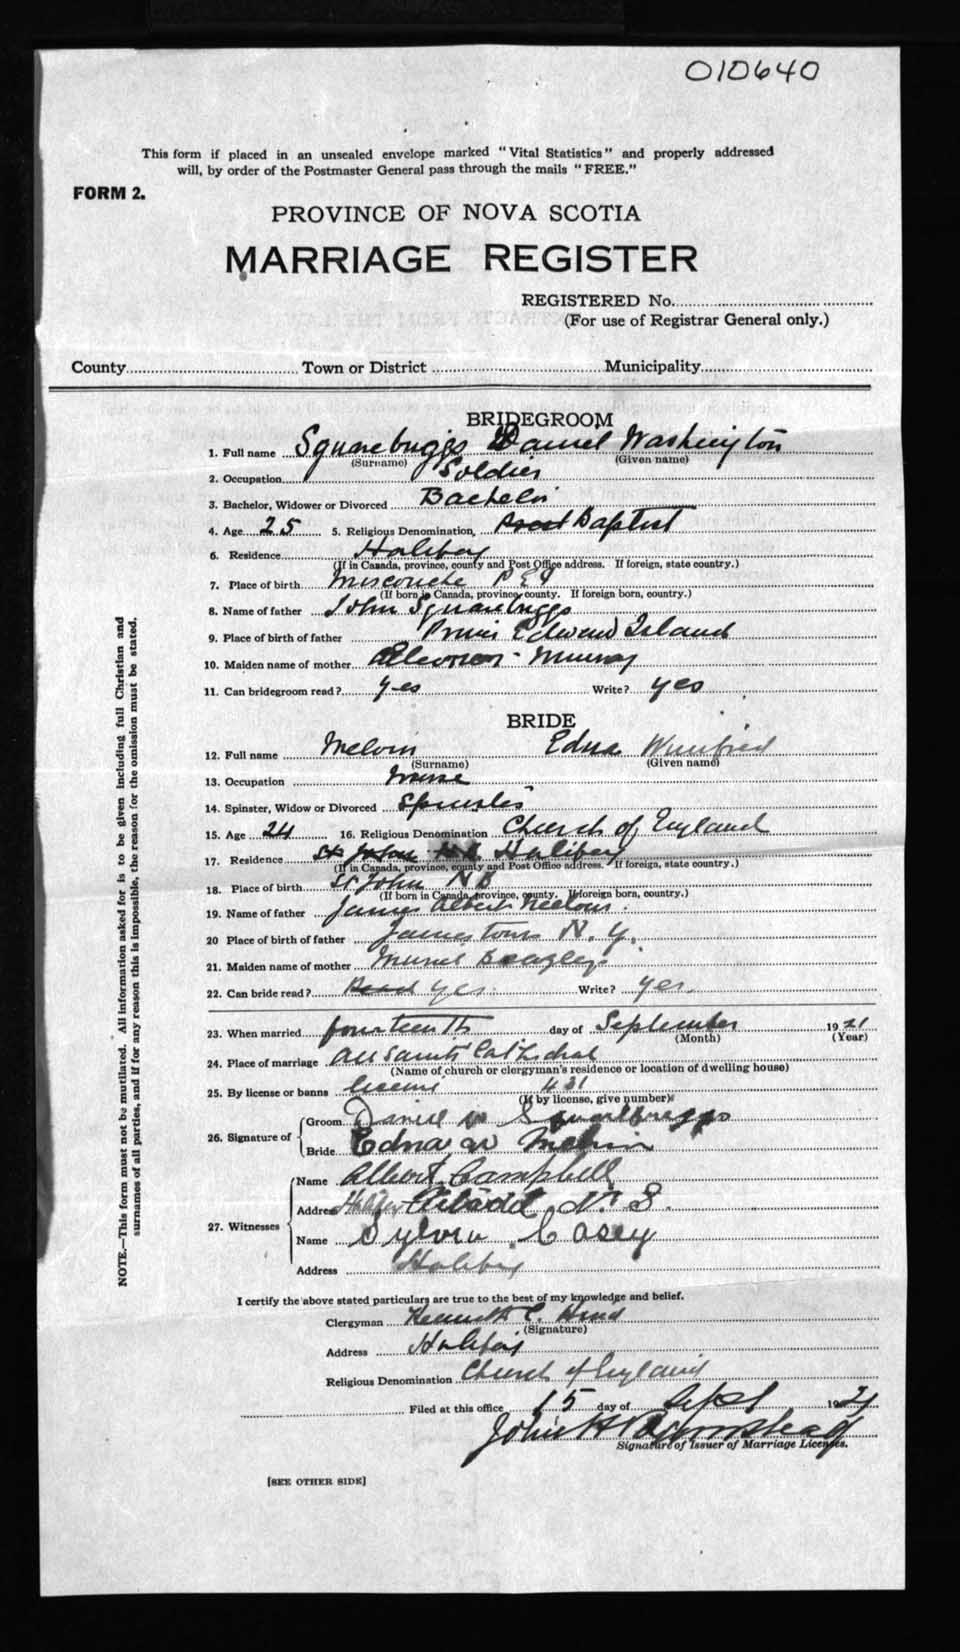 010640
This form if placed in an unsealed envelope marked "Vital Statistics" and properly addressed
will, by order of the Postmaster General pass through the mails "FREE."
FORM 2.
PROVINCE OF NOVA SCOTIA
MARRIAGE REGISTER
REGISTERED No.
(For use of Registrar General only.)
County Town or District Municipality
BRIDEGROOM
1. Full name Squarebriggs Daniel Washington
(Surname) (Given name)
2. Occupation Soldier
3. Bachelor, Widower or Divorced Bachelor
4. Age 25 5. Religious Denomination, Baptist
6. Residence Halifax
(If in Canada, province, county and Post Office address. If foreign, state country.)
7. Place of birth Miscouche P E I
(If born in Canada, province, county. If foreign born, country.)
8. Name of father John Squarebriggs
9. Place of birth of father Prince Edward Island
10. Maiden name of mother Eleanor Murray
11. Can bridegroom read? yes Write? yes
BRIDE
12. Full name Melvin Edna Winifred
(Surname) (Given name)
13. Occupation Nurse
14. Spinster, Widow or Divorced Spinster
15. Age 24 16. Religious Denomination Church of England
17. Residence St John N B Halifax
(If in Canada, province, county and Post Office address. If foreign, state country.)
18. Place of birth St John N B
(If born in Canada, province, county. If foreign born, country.)
19. Name of father James Albert Melvin.
20 Place of birth of father Jamestown N. Y.
21. Maiden name of mother Muriel Beazley
22. Can bride read? Read yes. Write? yes.
23. When married fourteenth day of September 1921
(Month) (Year)
24. Place of marriage All Saints Cathedral
(Name of church or clergyman's residence or location of dwelling house)
25. By license or banns license 431
(If by license, give number)
26. Signature of
Groom Daniel W Squarebriggs
Bride Edna W Melvin
27. Witnesses
Name Albert Campbell
Address Halifax N. S.
Name Sylvia Casey
Address Halifax
I certify the above stated particulars are true to the best of my knowledge and belief.
Clergyman Kenneth C. Hind
(Signature)
Address Halifax
Religious Denomination Church of England
Filed at this office 15 day of Sept 1921
John H
Signature of Issuer of Marriage Licenses.
[SEE OTHER SIDE]
NOTE.—This form must not be mutilated. All information asked for is to be given including full Christian and
surnames of all parties, and if for any reason this is impossible, the reason for the omission must be stated.